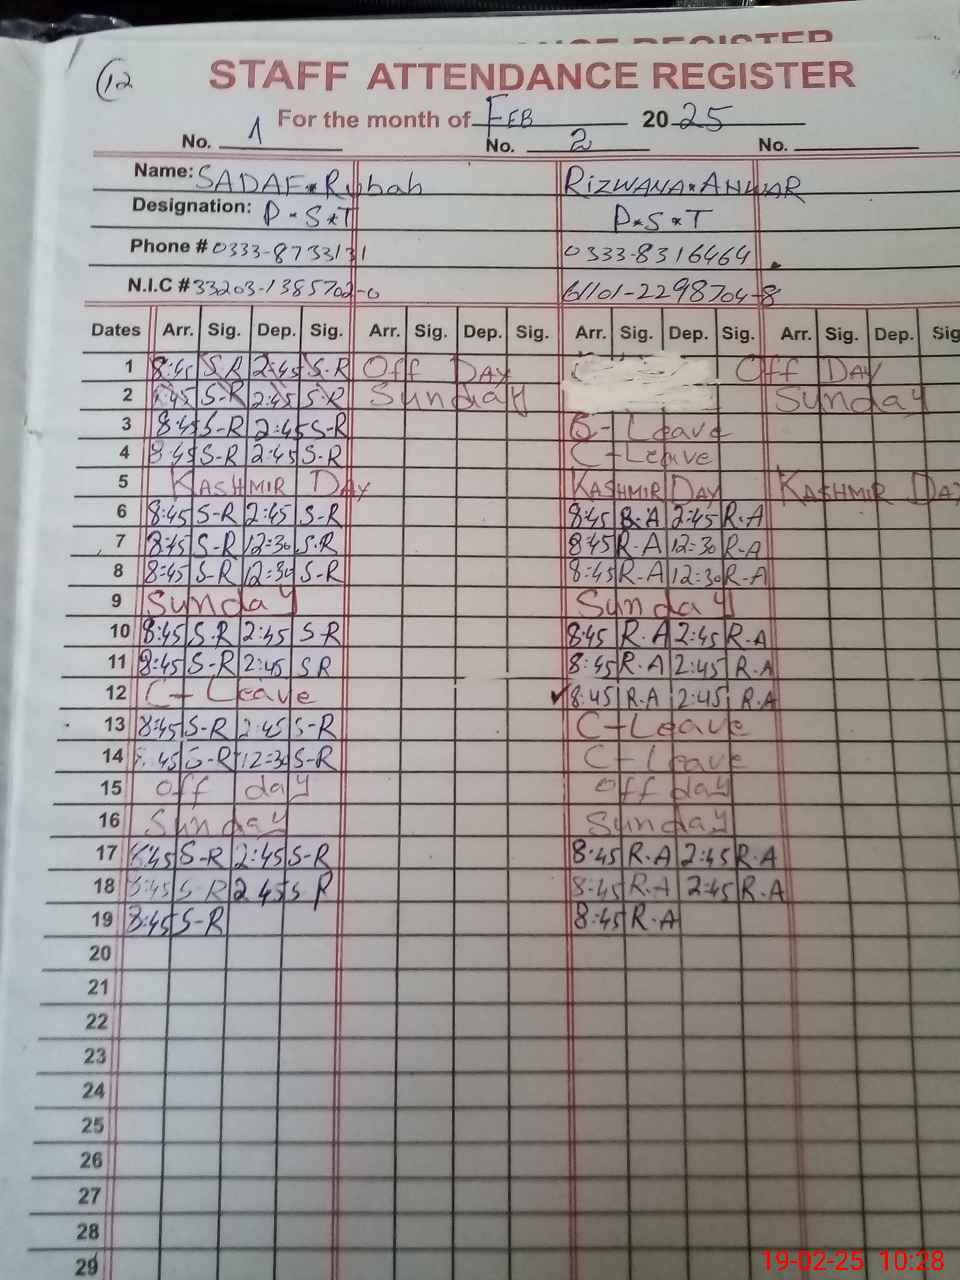 12
STAFF ATTENDANCE REGISTER
For the month of FEB 2025
No. 1 No. 2 No.
Name: SADAF*Rubah RIZWANA*ANWAR
Designation: P*S*T P*S*T
Phone # 0333-8733131 0333-8316464
N.I.C # 33203-1385702-0 61101-2298704-8
Dates Arr. Sig. Dep. Sig. Arr. Sig. Dep. Sig. Arr. Sig. Dep. Sig. Arr. Sig. Dep. Sig
1 8:45 S-R 2:45 S-R Off DAY Off DAY
2 :45 S-R 2:45 S-R Sunday Sunday
3 8:45 S-R 2:45 S-R Leave
4 8:45 S-R 2:45 S-R C-Leave
5 KASHMIR DAY KASHMIR DAY KASHMIR DAY
6 8:45 S-R 2:45 S-R 8:45 R.A 2:45 R.A
7 8:45 S-R 12:30 S.R 8:45 R-A 12:30 R-A
8 8:45 S-R 12:30 S-R 8:45 R-A 12:30 R-A
9 Sunday Sunday
10 8:45 S-R 2:45 S-R 8:45 R.A 2:45 R-A
11 8:45 S-R 2:45 SR 8:45 R-A 2:45 R-A
12 C-Leave ✓ 8:45 R.A 2:45 R.A
13 8:45 S-R 2:45 S-R C-Leave
14 :45 S-R 12:30 S-R C-Leave
15 off day off day
16 Sunday Sunday
17 8:45 S-R 2:45 S-R 8:45 R.A 2:45 R.A
18 8:45 S-R 2 45 S R 8:45 R.A 2:45 R.A
19 8:45 S-R 8:45 R.A
20
21
22
23
24
25
26
27
28
29
19-02-25 10:28